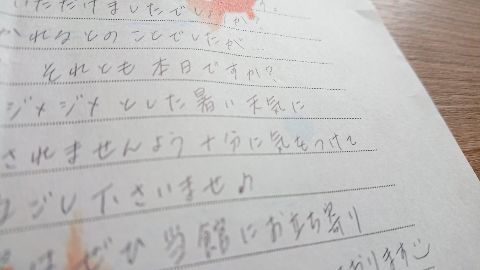 いただけましたでしょうか？
かれるとのことでしたが…
それとも本日ですか？
ジメジメとした暑い天気に
されませんよう十分に気をつけて
ごし下さいませ♪
ぜひ当館にお立ち寄り
おります